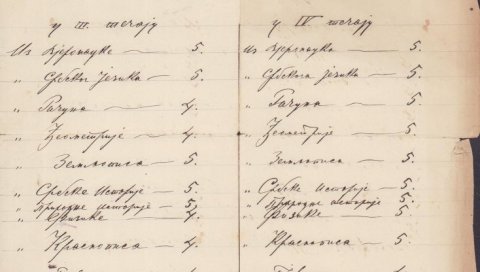 у III. течају
Из Вјеронауке — 5.
„ Србског језика — 5.
„ Рачуна — 4.
„ Геометрије — 4.
„ Земљописа — 5.
„ Србске историје — 5.
„ Природне историје — 5.
„ Физике — 4.
„ Краснописа — 4.
у IV течају
Из Вјеронауке — 5.
„ Србскога језика — 5.
„ Рачуна — 5
„ Геометрије — 5.
„ Земљописа — 5.
„ Србске историје — 5.
„ Природне историје — 5.
„ Физике — 5
„ Краснописа — 5.